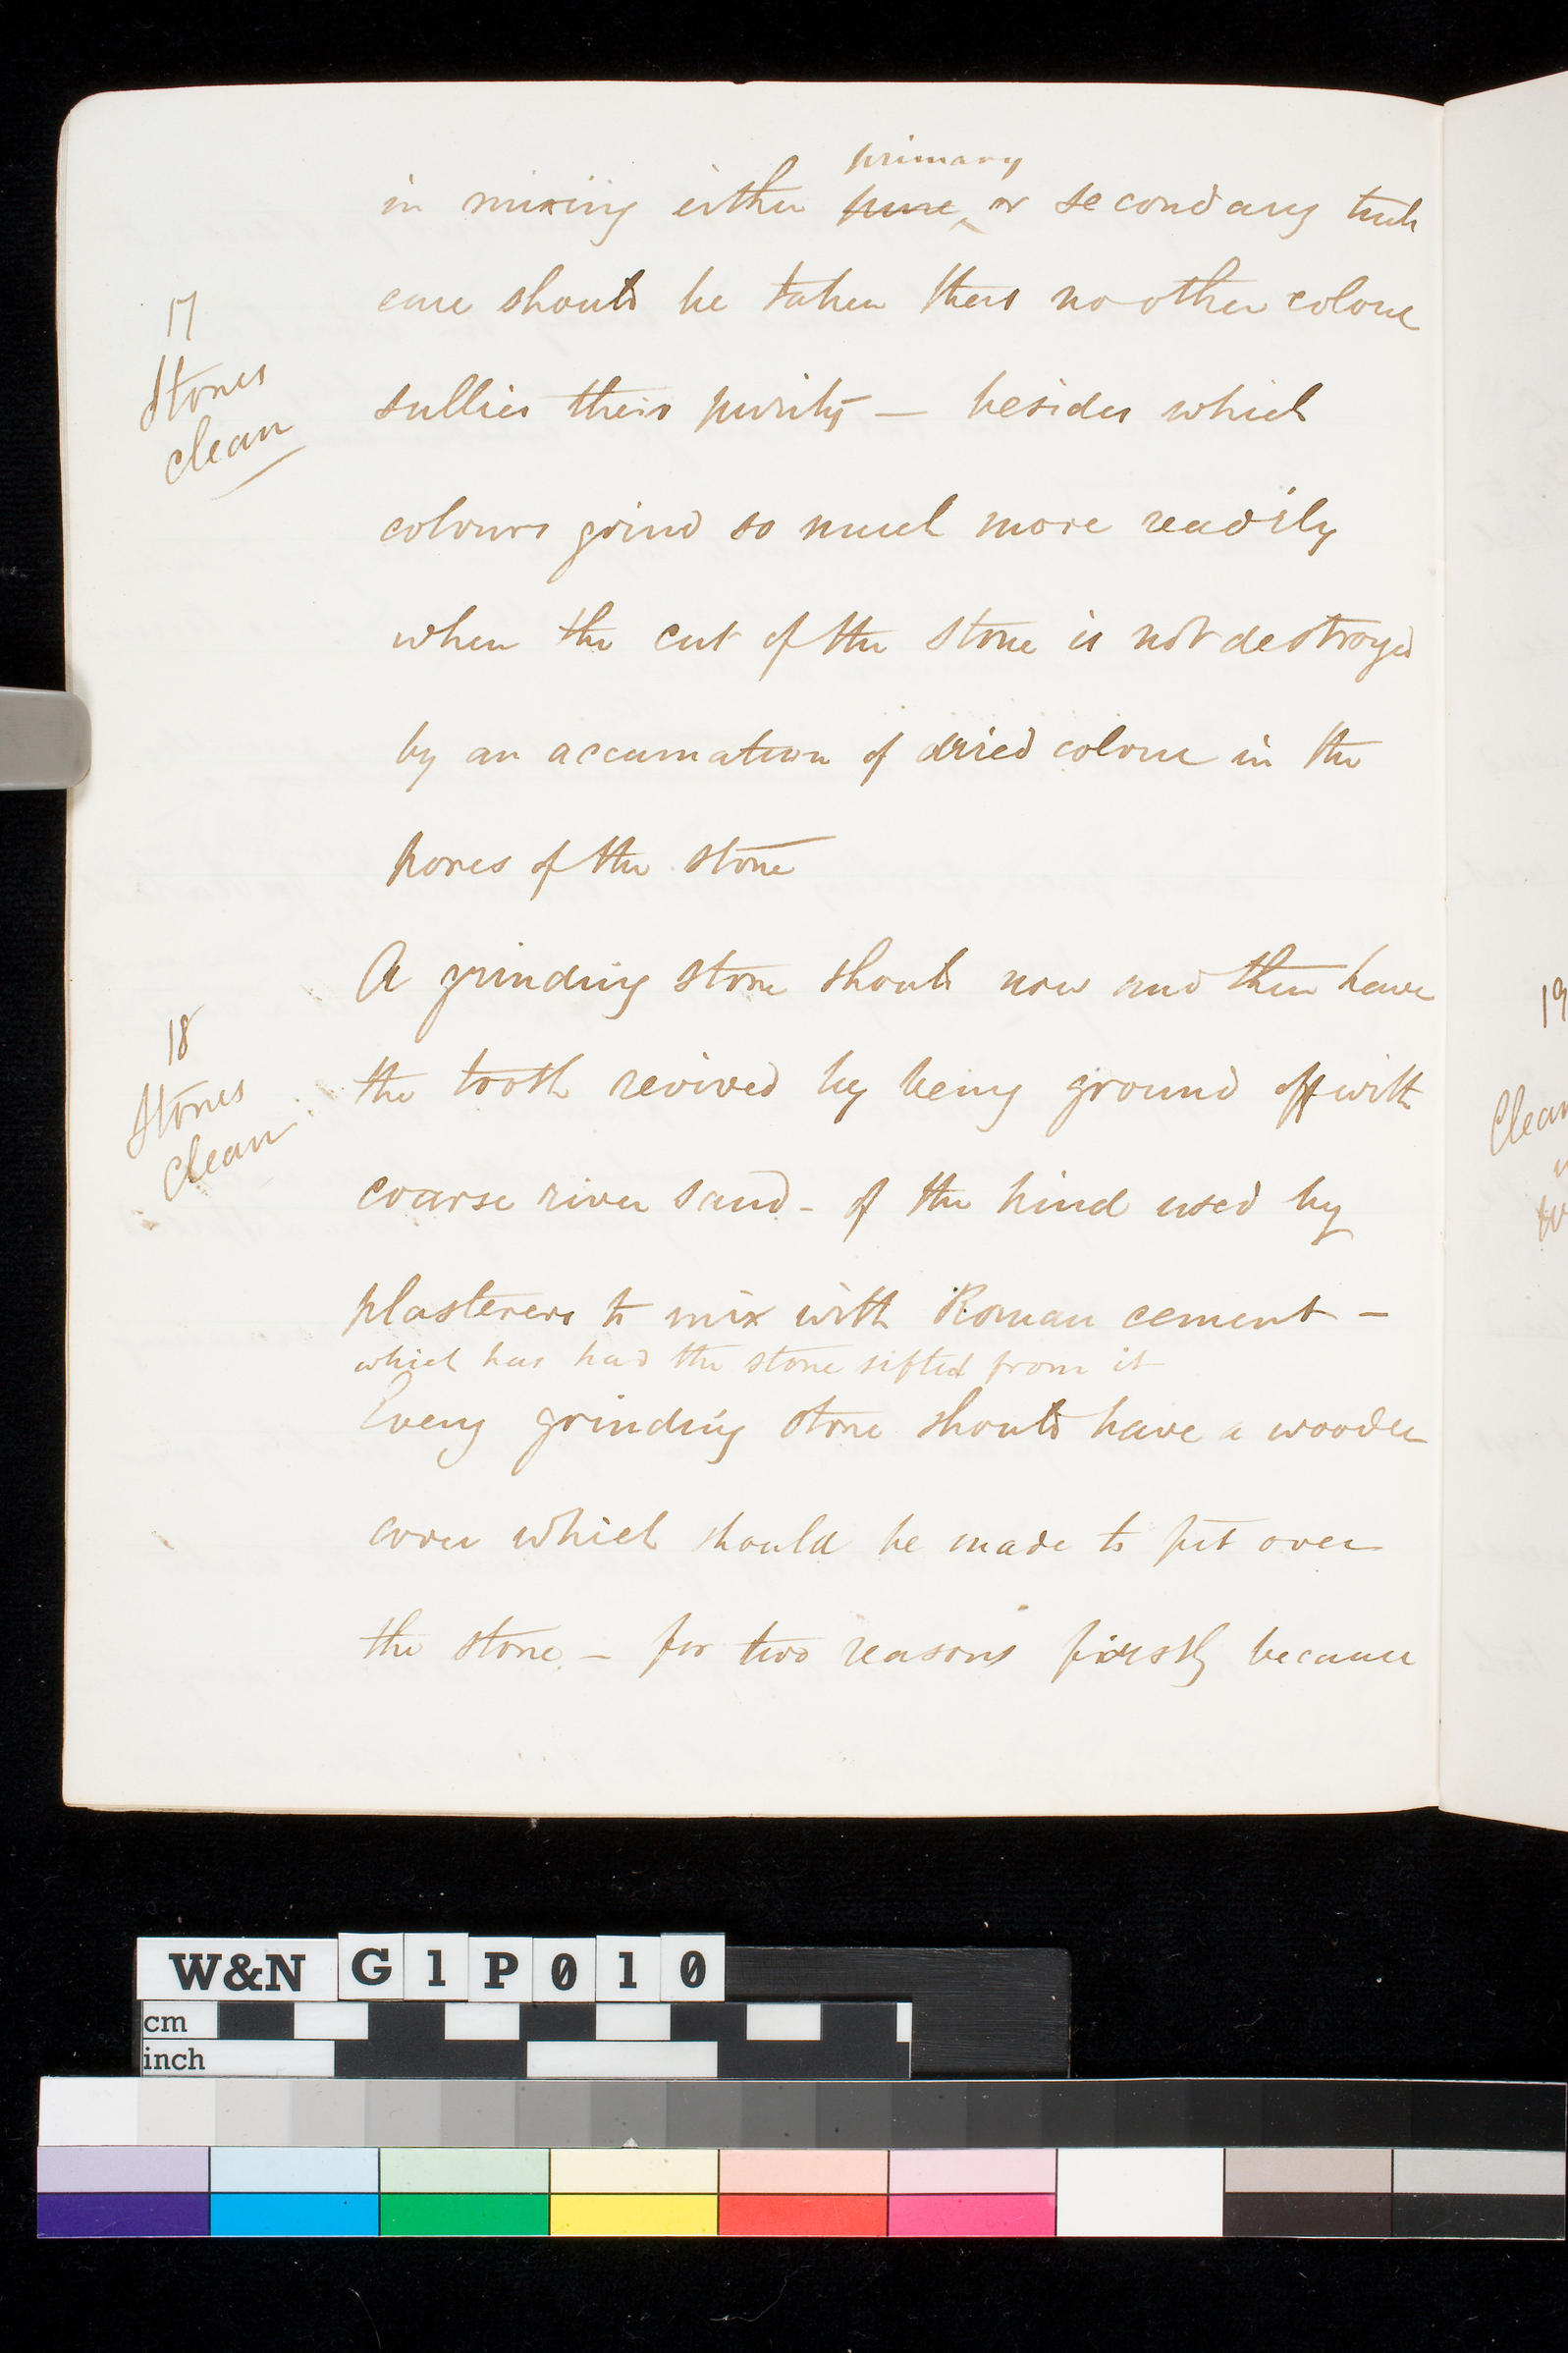 primary
in mixing either pure or secondary tints
17
Stones
clean
care should be taken that no other colour
sullies their purity — besides which
colours grind so much more readily
when the cut of the stone is not destroyed
by an accumation of dried colour in the
pores of the stone
18
Stones
clean
A grinding stone should now and then have
the tooth revived by being ground off with
coarse river sand - of the kind used by
plasterers to mix with Roman cement -
which has had the stone sifted from it
Every grinding stone should have a wooden
cover which should be made to fit over
the stone - for two reasons firstly because
19
Clean
W&N G1P010
cm
inch